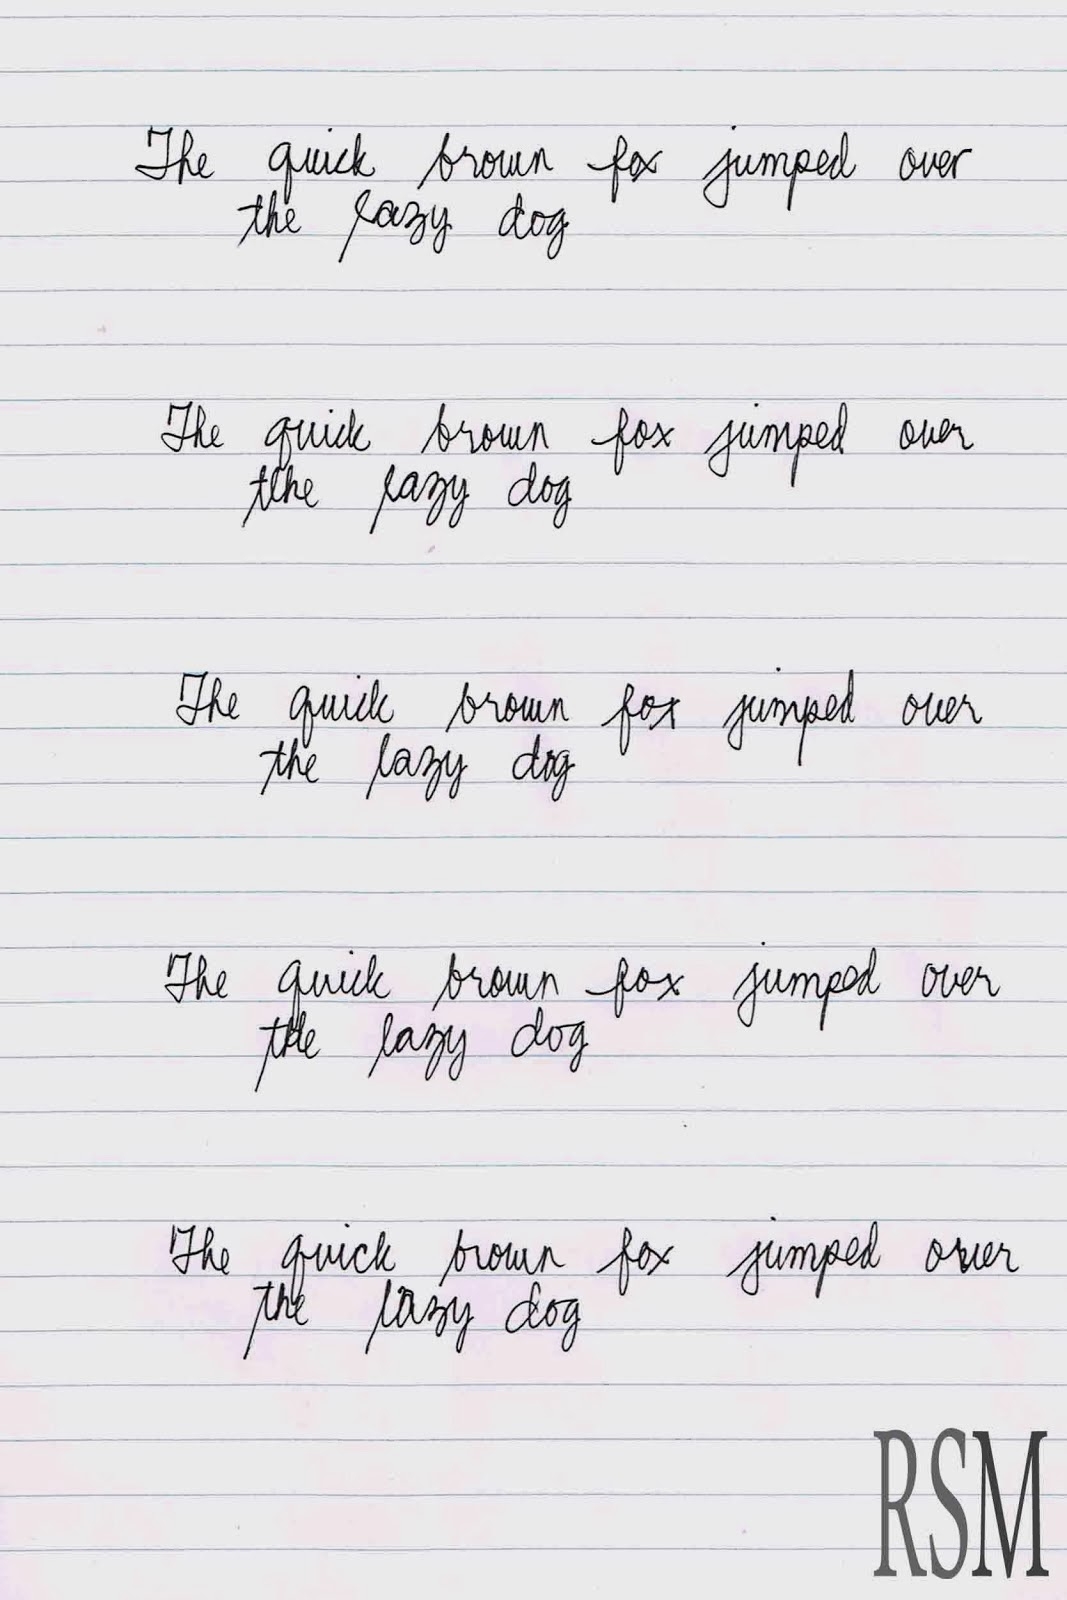 The quick brown fox jumped over
the lazy dog
The quick brown fox jumped over
the lazy dog
The quick brown fox jumped over
the lazy dog
The quick brown fox jumped over
the lazy dog
The quick brown fox jumped over
the lazy dog
RSM